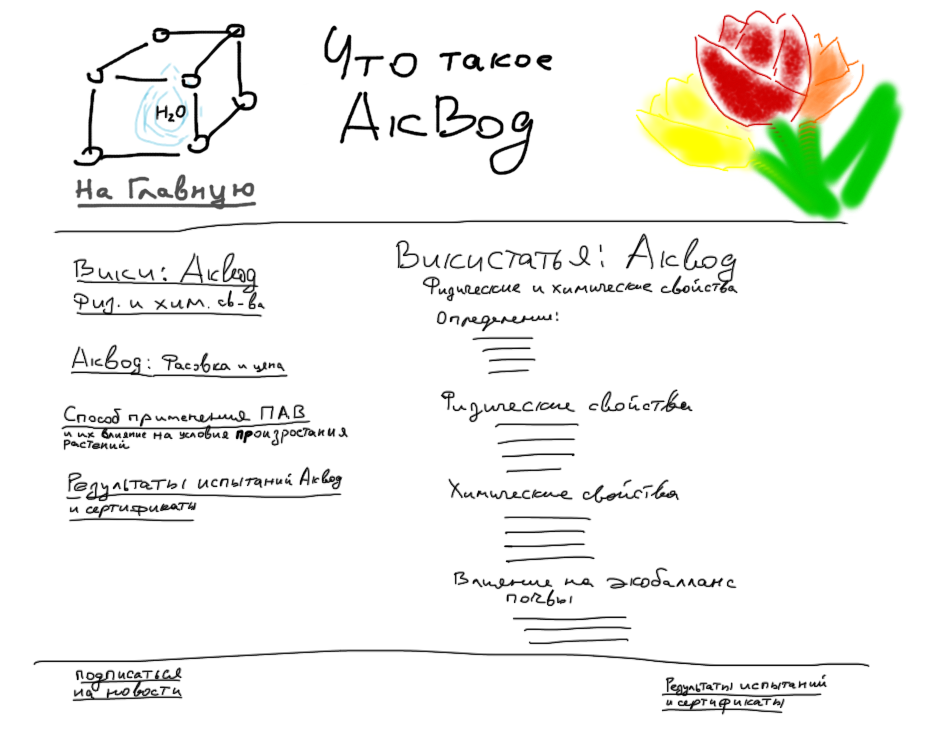 Что такое
АкВод
H₂O
На Главную
Вики: Аквод
Физ. и хим. св-ва
Аквод: Фасовка и цена
Способ применения ПАВ
и их влияние на условия произростания
растений
Результаты испытаний Аквод
и сертификаты
Викистатья: Аквод
Физические и химические свойства
Определение:
Физические свойства
Химические свойства
Влияние на экобалланс
почвы
подписаться
на новости
Результаты испытаний
и сертификаты